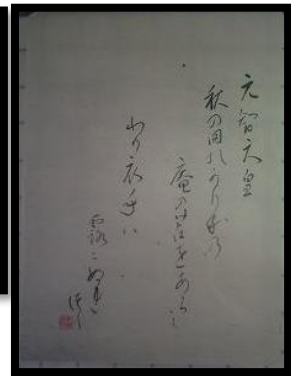 天智天皇
秋の田のかりほ乃
庵のとまをあらミ
わが衣手ハ
露ニぬれ